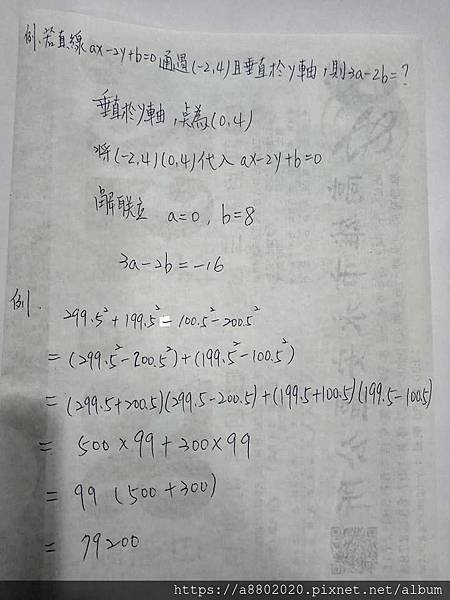 例.若直線ax-2y+b=0通過(-2,4)且垂直於y軸,則3a-2b=?
垂直於y軸,點為(0,4)
將(-2,4)(0,4)代入 ax-2y+b=0
解联立 a=0, b=8
3a-2b=-16
例.
299.5²+199.5²-100.5²-200.5²
=(299.5²-200.5²)+(199.5²-100.5²)
=(299.5+200.5)(299.5-200.5)+(199.5+100.5)(199.5-100.5)
= 500×99+300×99
= 99 (500+300)
= 79200
https://a8802020.pixnet.net/album